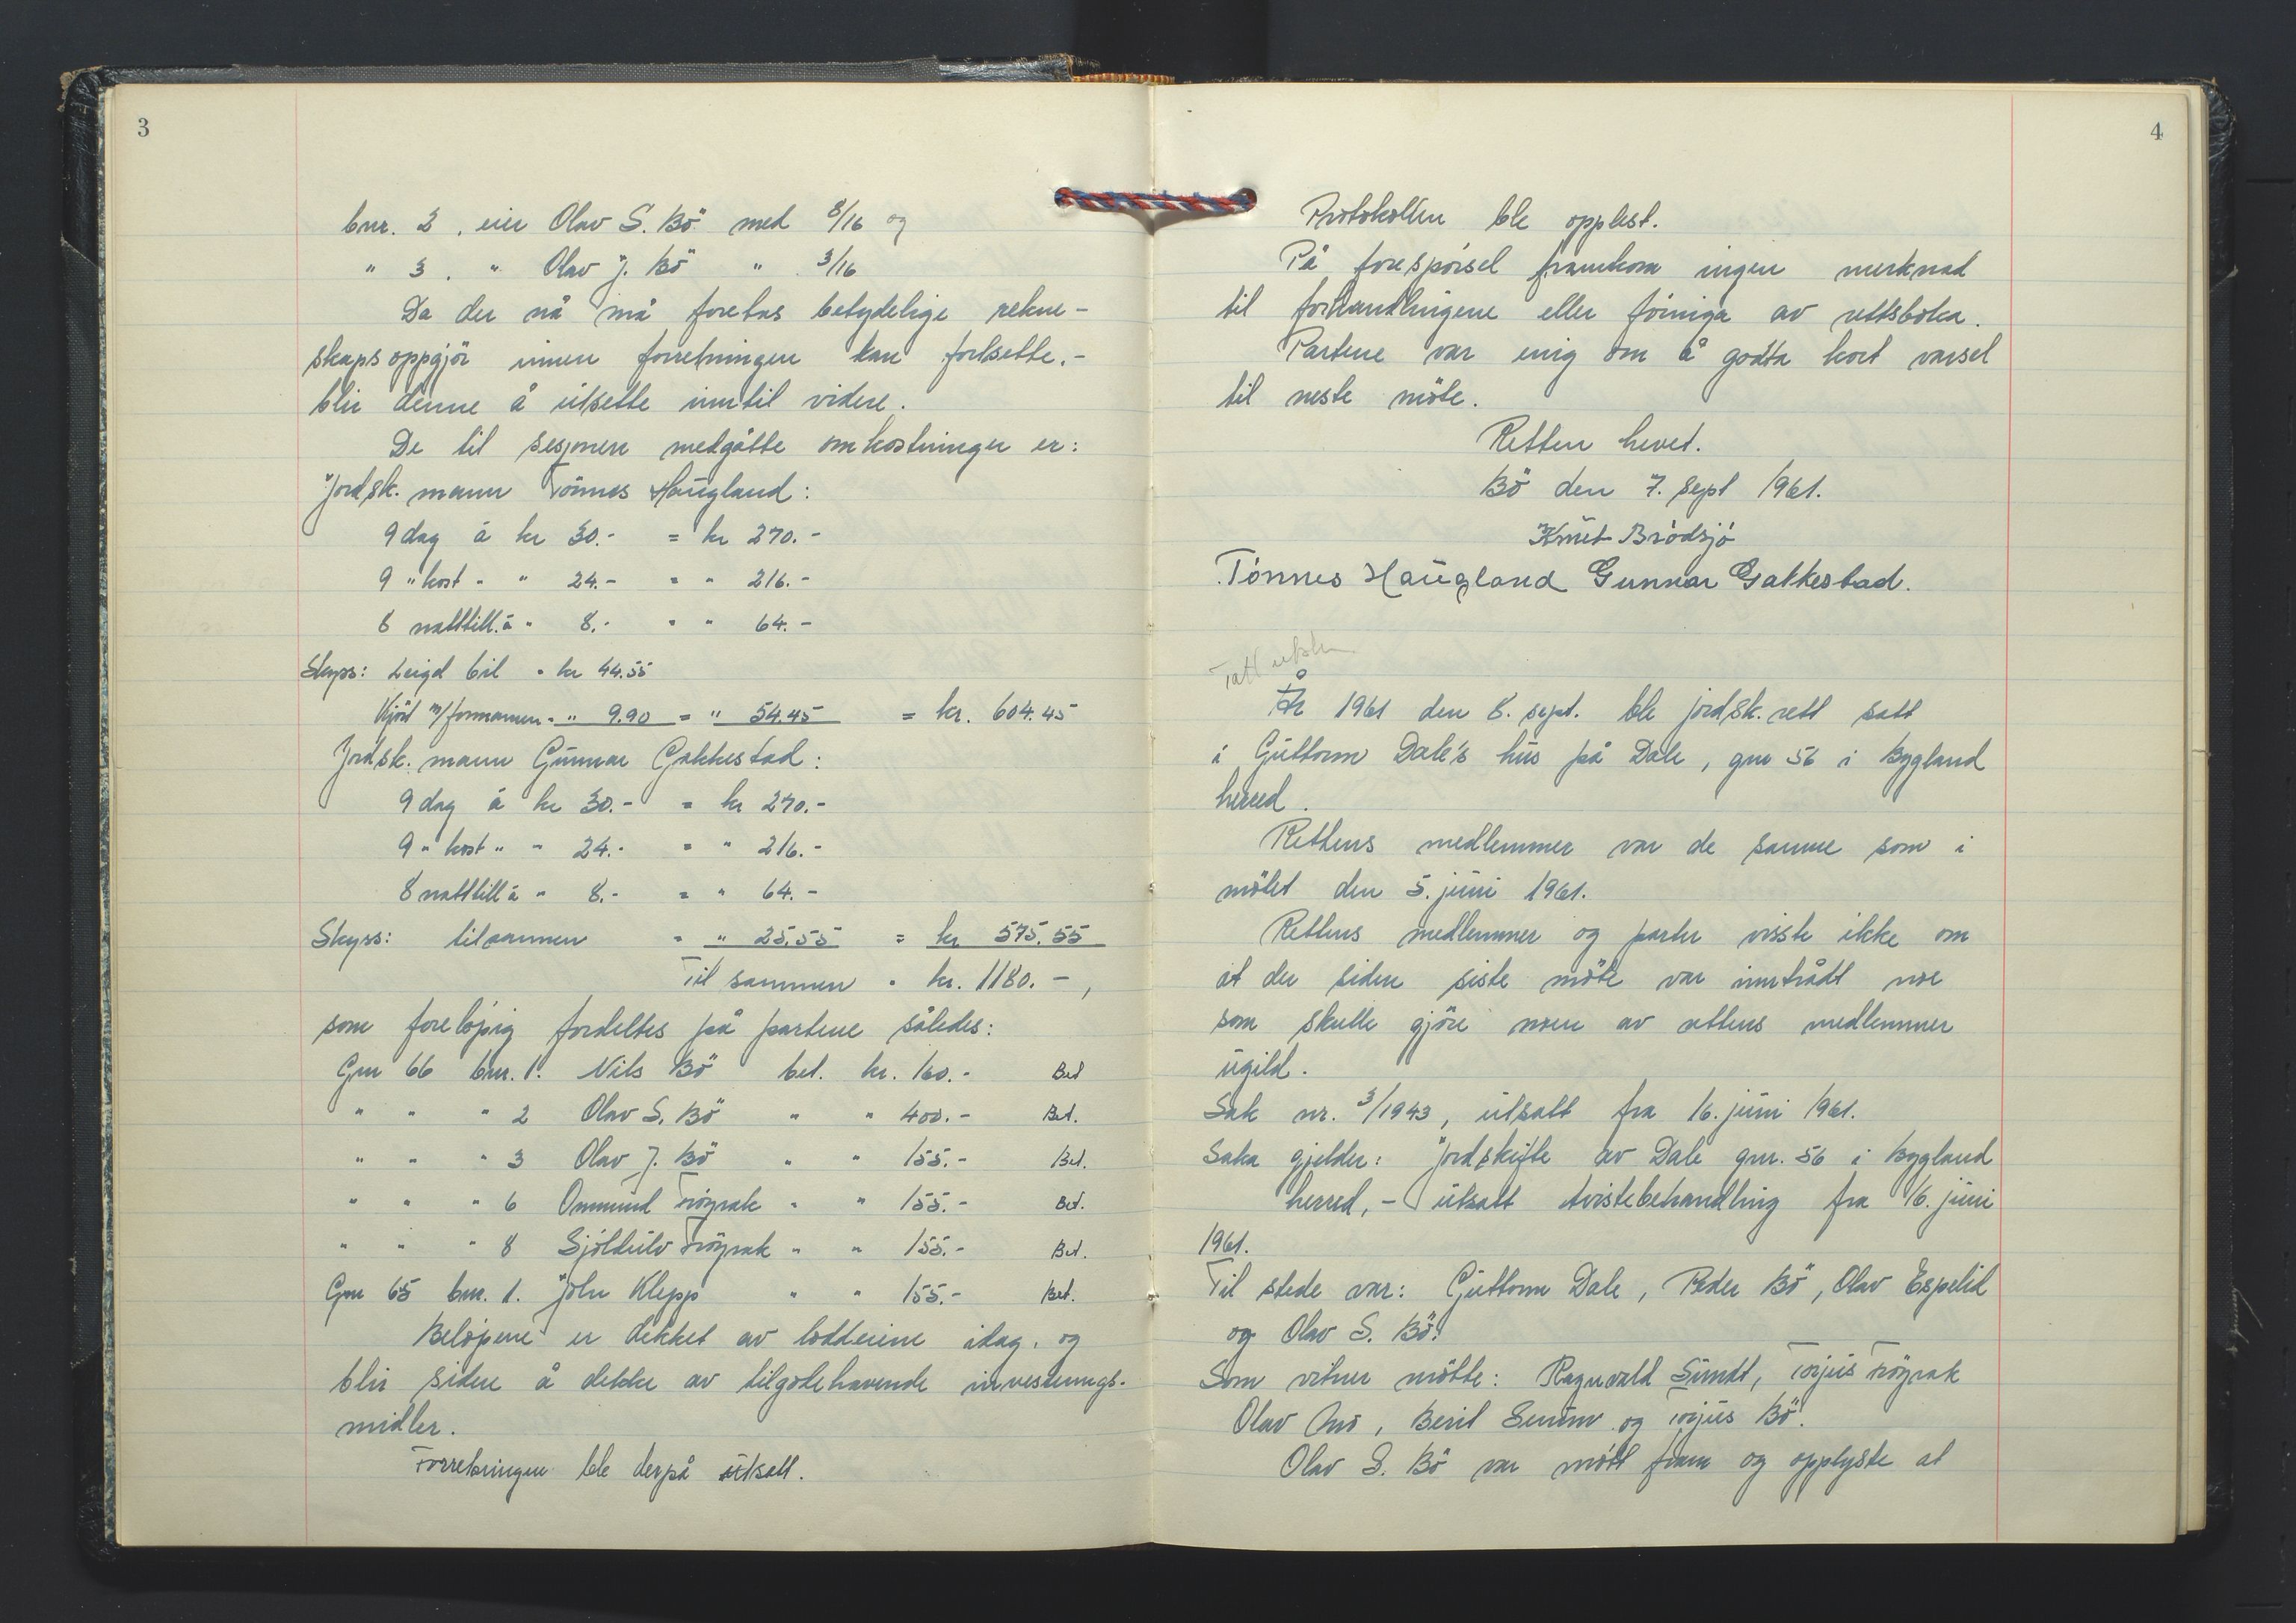 3
bnr. 2, eier Olav S. Bö med 8/16 og
" 3. " Olav J. Bö " 3/16
Da der nå må foretas betydelige rekne-
skapsoppgjör innen forretningen kan fortsette.-
blir denne å utsette inntil videre.
De til sesjonen medgåtte omkostninger er:
Jordsk. mann Tönnes Haugland:
9 dag á kr 30.- = kr 270.-
9 " kost " " 24.- = " 216.-
8 natttill. á " 8.- = " 64.-
Skyss: Leigd bil = kr 44.55
Kjört m/formannen = " 9.90 = " 54.45 = kr. 604.45
Jordsk. mann Gunnar Gakkestad:
9 dag á kr 30.- = kr 270.-
9 " kost " " 24.- = " 216.-
8 natttill á " 8.- = " 64.-
Skyss: tilsammen = " 25.55 = kr 575.55
Til sammen = kr. 1180.-,
som forelöpig fordeltes på partene således:
Gnr 66 bnr. 1. Nils Bö bet. kr. 160.- Bet
" " " 2 Olav S. Bö " " 400.- Bet.
" " " 3 Olav J. Bö " " 155.- Bet.
" " " 6 Ommund Trögrak " " 155.- Bet.
" " " 8 Sjöldulv Tröyrak " " 155.- Bet.
Gnr 65 bnr. 1. John Klepp " " 155.- Bet.
Belöpene er dekket av lodderiene idag, og
blir sidere å dekke av tilgodehavende
midler.
Forretningen ble derpå utsatt.
4
Protokollen ble opplest.
På forespörsel framkom ingen merknad
til forhandlingene eller föringa av rettsboka.
Partene var enig om å godta kort varsel
til neste möte.
Retten hevet.
Bö den 7. sept 1961.
Knut Brödsjö
Tönnes Haugland Gunnar Gakkestad.
Tatt utskr
År 1961 den 8. sept. ble jordsk. rett satt
i Guttorm Dale's hus på Dale, gnr 56 i Bygland
herred.
Rettens medlemmer var de samme som i
mötet den 5. juni 1961.
Rettens medlemmer og parter visste ikke om
at der siden siste möte var inntrådt noe
som skulle gjöre noen av rettens medlemmer
ugild.
Sak nr. 3/1943, utsatt fra 16. juni 1961.
Saka gjelder: Jordskifte av Dale gnr. 56 i Bygland
herred, - utsatt tvistebehandling fra 16. juni
1961.
Til stede var: Guttorm Dale, Peder Bö, Olav Espelid
og Olav S. Bö.
Som vitner mötte: Ragnvald Sundt, Torjus Tröyrak
Olav, Beril og Torjus Bö.
Olav S. Bö var mött fram og opplyste at